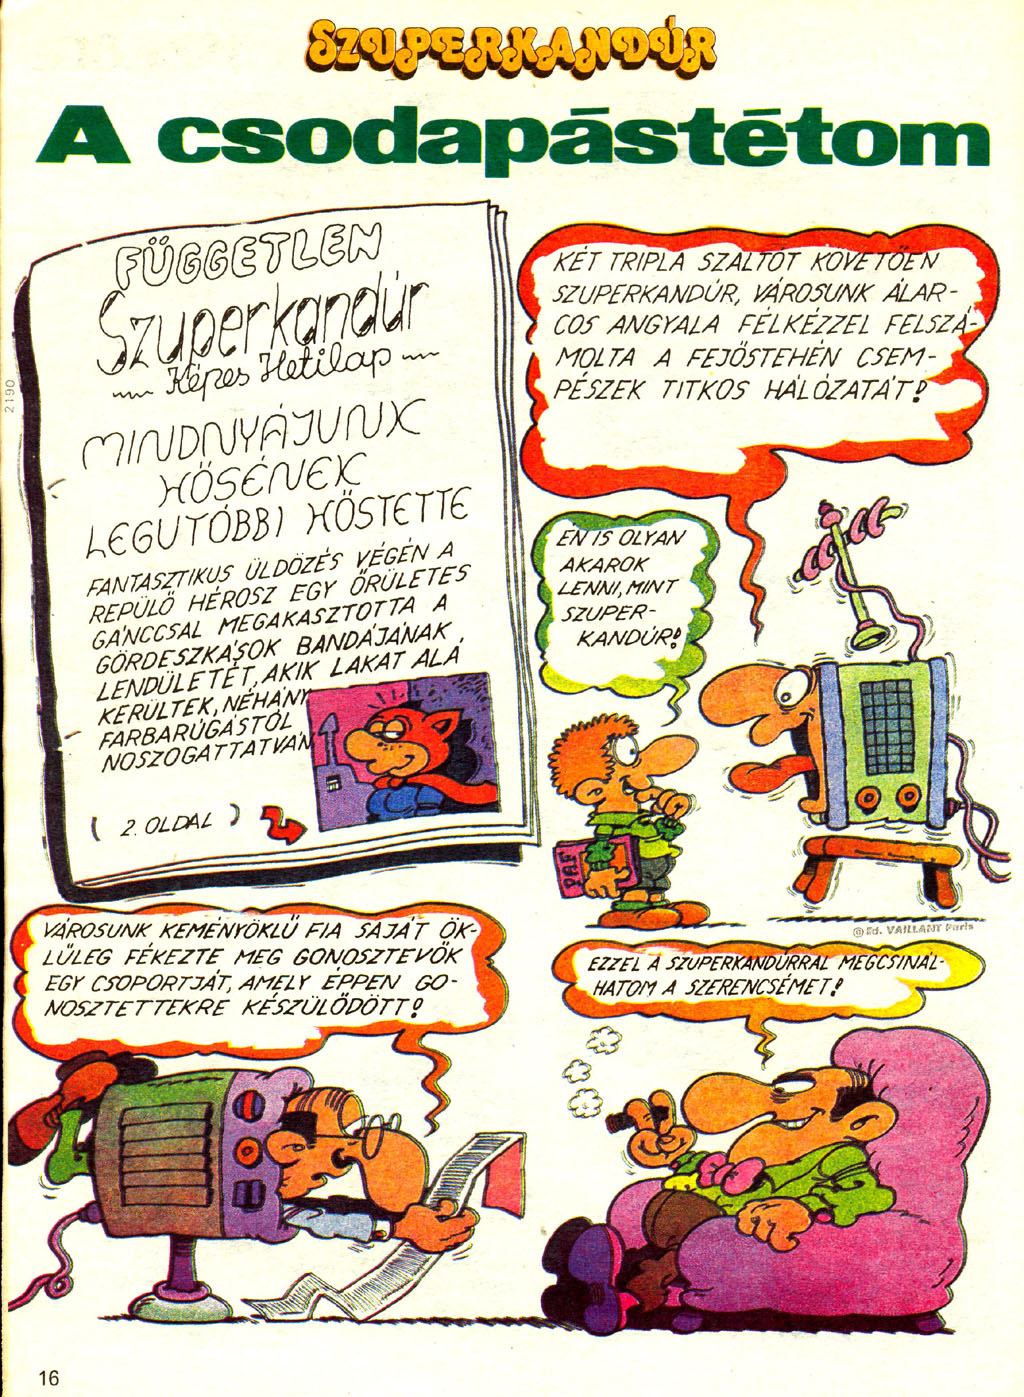 SZUPERKANDÚR
A csodapástétom
FÜGGETLEN
Szuperkandúr
Képes Hetilap
MINDNYÁJUNK
HŐSÉNEK
LEGUTÓBBI HŐSTETTE
FANTASZTIKUS ÜLDÖZÉS VÉGÉN A
REPÜLŐ HÉROSZ EGY ŐRÜLETES
GÁNCCSAL MEGAKASZTOTTA A
GÖRDESZKÁSOK BANDÁJÁNAK
LENDÜLETÉT, AKIK LAKAT ALÁ
KERÜLTEK, NÉHÁNY
FARBARÚGÁSTÓL
NOSZOGATTATVÁN
( 2. OLDAL )
KÉT TRIPLA SZALTÓT KÖVETŐEN
SZUPERKANDÚR, VÁROSUNK ÁLAR-
COS ANGYALA FÉLKÉZZEL FELSZÁ-
MOLTA A FEJŐSTEHÉN CSEM-
PÉSZEK TITKOS HÁLÓZATÁT!
ÉN IS OLYAN
AKAROK
LENNI, MINT
SZUPER-
KANDÚR!
PAF
© Ed. VAILLANT Paris
2190
VÁROSUNK KEMÉNYÖKLŰ FIA SAJÁT ÖK-
LÜLEG FÉKEZTE MEG GONOSZTEVŐK
EGY CSOPORTJÁT, AMELY ÉPPEN GO-
NOSZTETTEKRE KÉSZÜLŐDÖTT!
EZZEL A SZUPERKANDÚRRAL MEGCSINÁL-
HATOM A SZERENCSÉMET!
16